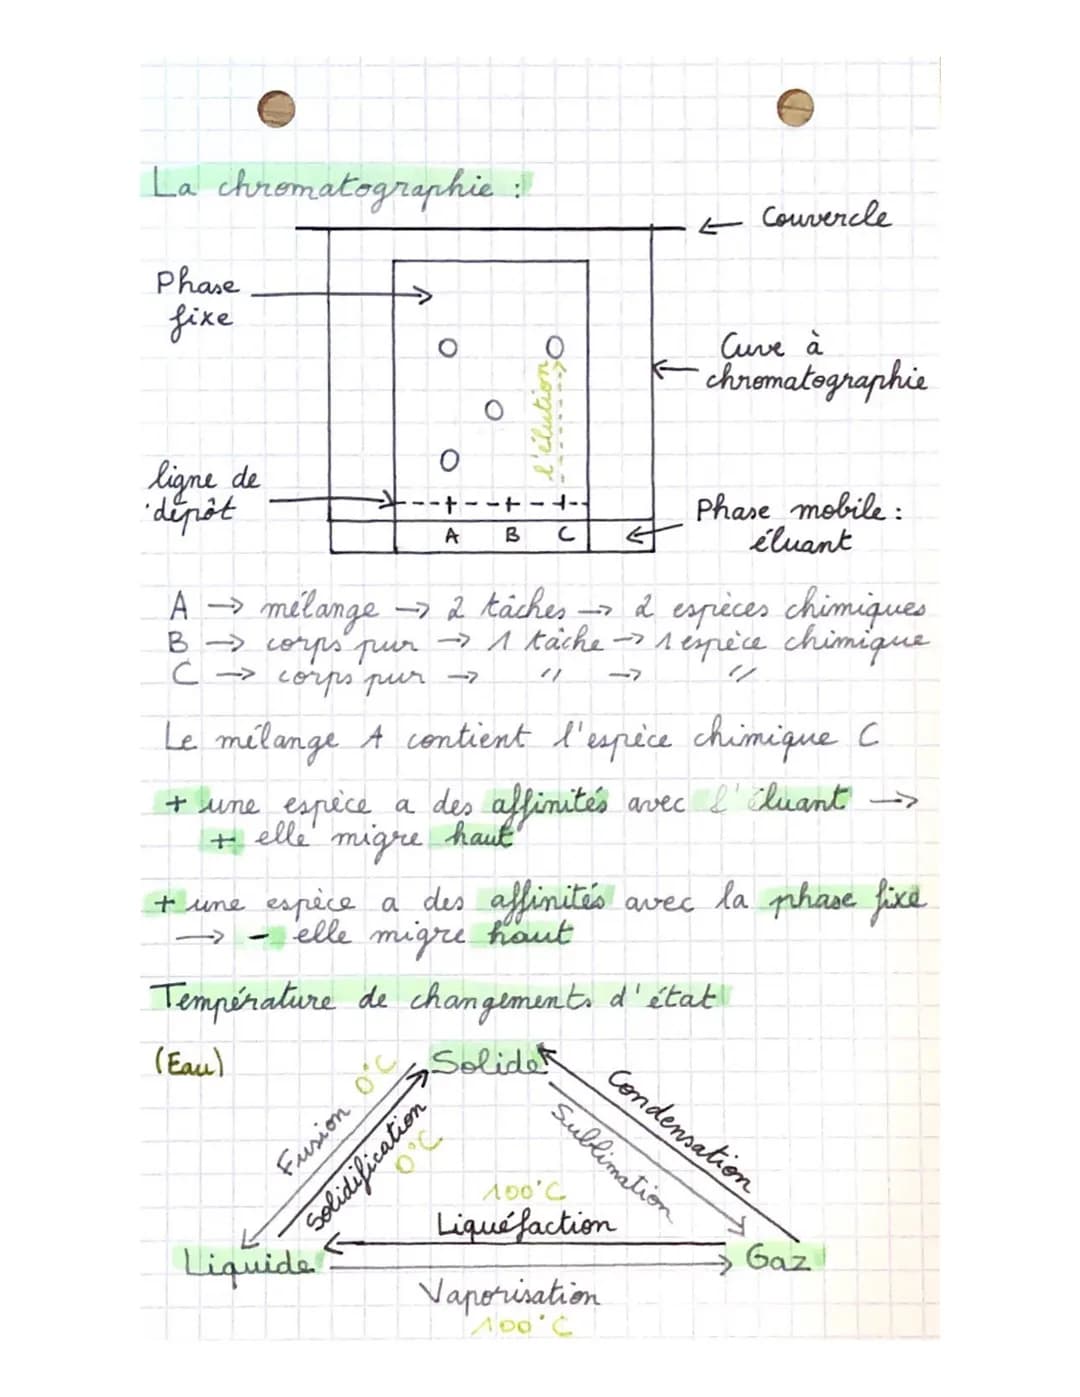 La chromatographie :
Couvercle
Phase
fixe
Cuve à
chromatographie
l'élution
ligne de
dépôt
Phase mobile :
éluant
A B C
A → mélange → 2 tâches → 2 espèces chimiques
B → corps pur → 1 tâche → 1 espèce chimique
C → corps pur → " → "
Le mélange A contient l'espèce chimique C
+ une espèce a des affinités avec l'éluant →
+ elle migre haut
+ une espèce a des affinités avec la phase fixe
→ - elle migre haut
Température de changements d'état
(Eau)
Solide
Fusion 0°C
Solidification
0°C
Condensation
Sublimation
100°C
Liquéfaction
Liquide
Gaz
Vaporisation
100°C